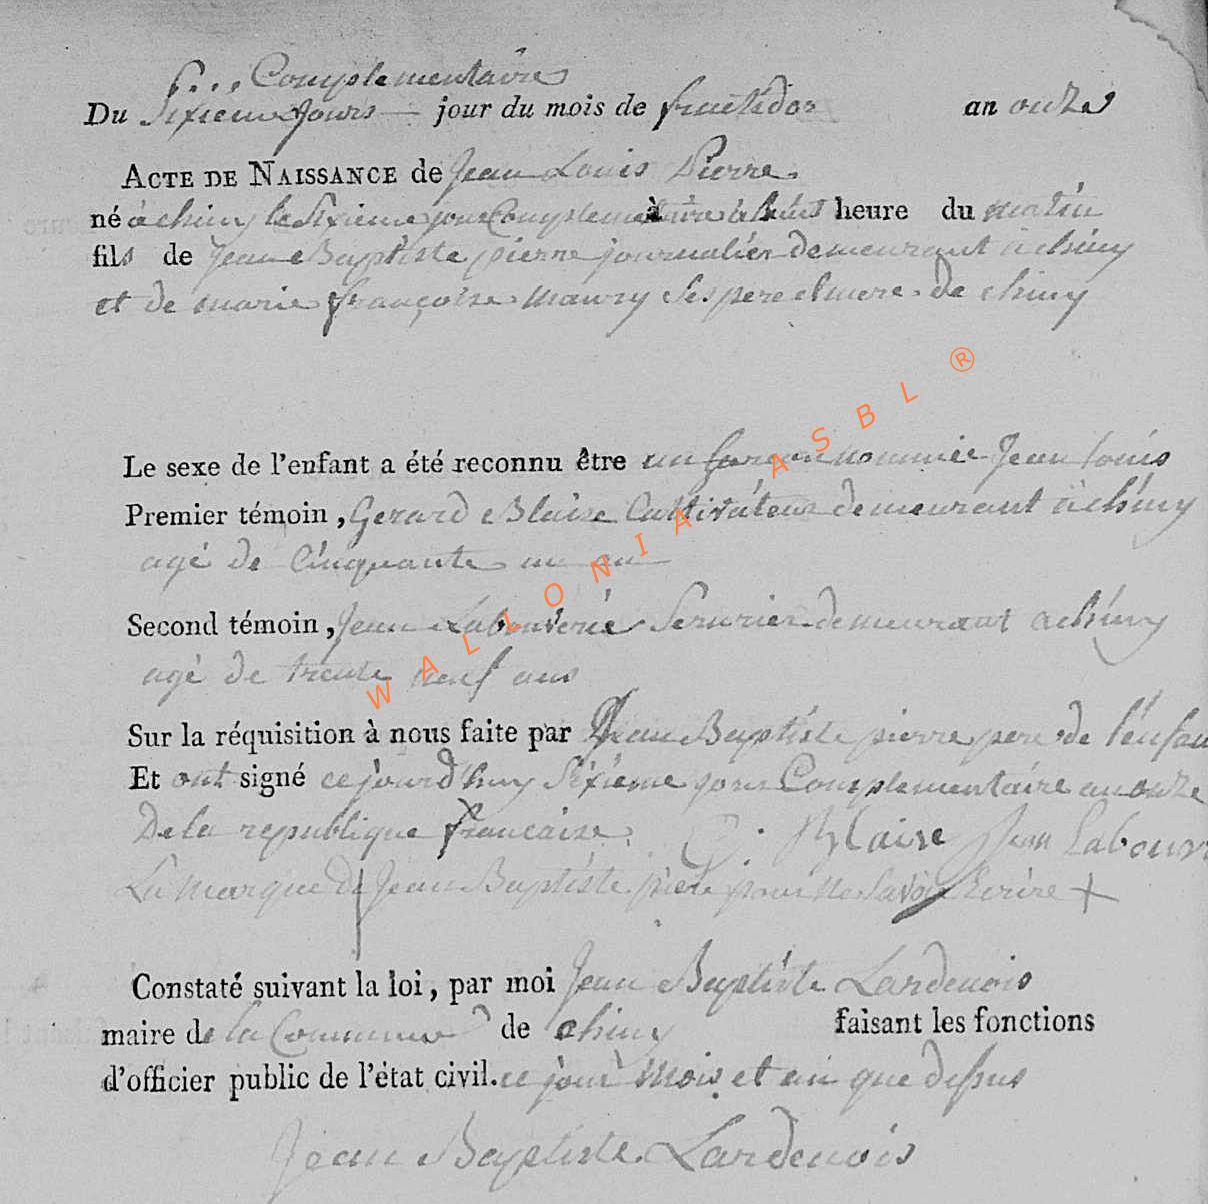 Complementaire
Du Sixieme Jours jour du mois de fructidor an onze
ACTE DE NAISSANCE de Jean Louis Pierre
né à chiny le Sixieme jour Complementaire à huit heure du matin
fils de Jean Baptiste pierre journalier demeurant à chiny
et de marie françoise maury Ses pere et mere de chiny
Le sexe de l'enfant a été reconnu être un garcon nommée Jean louis
Premier témoin, Gerard Blaise Cultivateur demeurant à chiny
agé de Cinquante un an
Second témoin, Jean Labouverie Serurier demeurant a chiny
agé de trente neuf ans
Sur la réquisition à nous faite par Jean Baptiste pierre pere de l'enfan
Et ont signé ce jourd'huy Sixieme jour Complementaire an onze
De la republique francaise. G. Blaise Jean Labouv
La marque de Jean Baptiste pierre pour ne Savoir Ecrire +
Constaté suivant la loi, par moi Jean Baptiste Lardenois
maire de la Commune de chiny faisant les fonctions
d'officier public de l'état civil. ce jour mois et an que dessus
Jean Baptiste Lardenois
WALLONIA ASBL ®